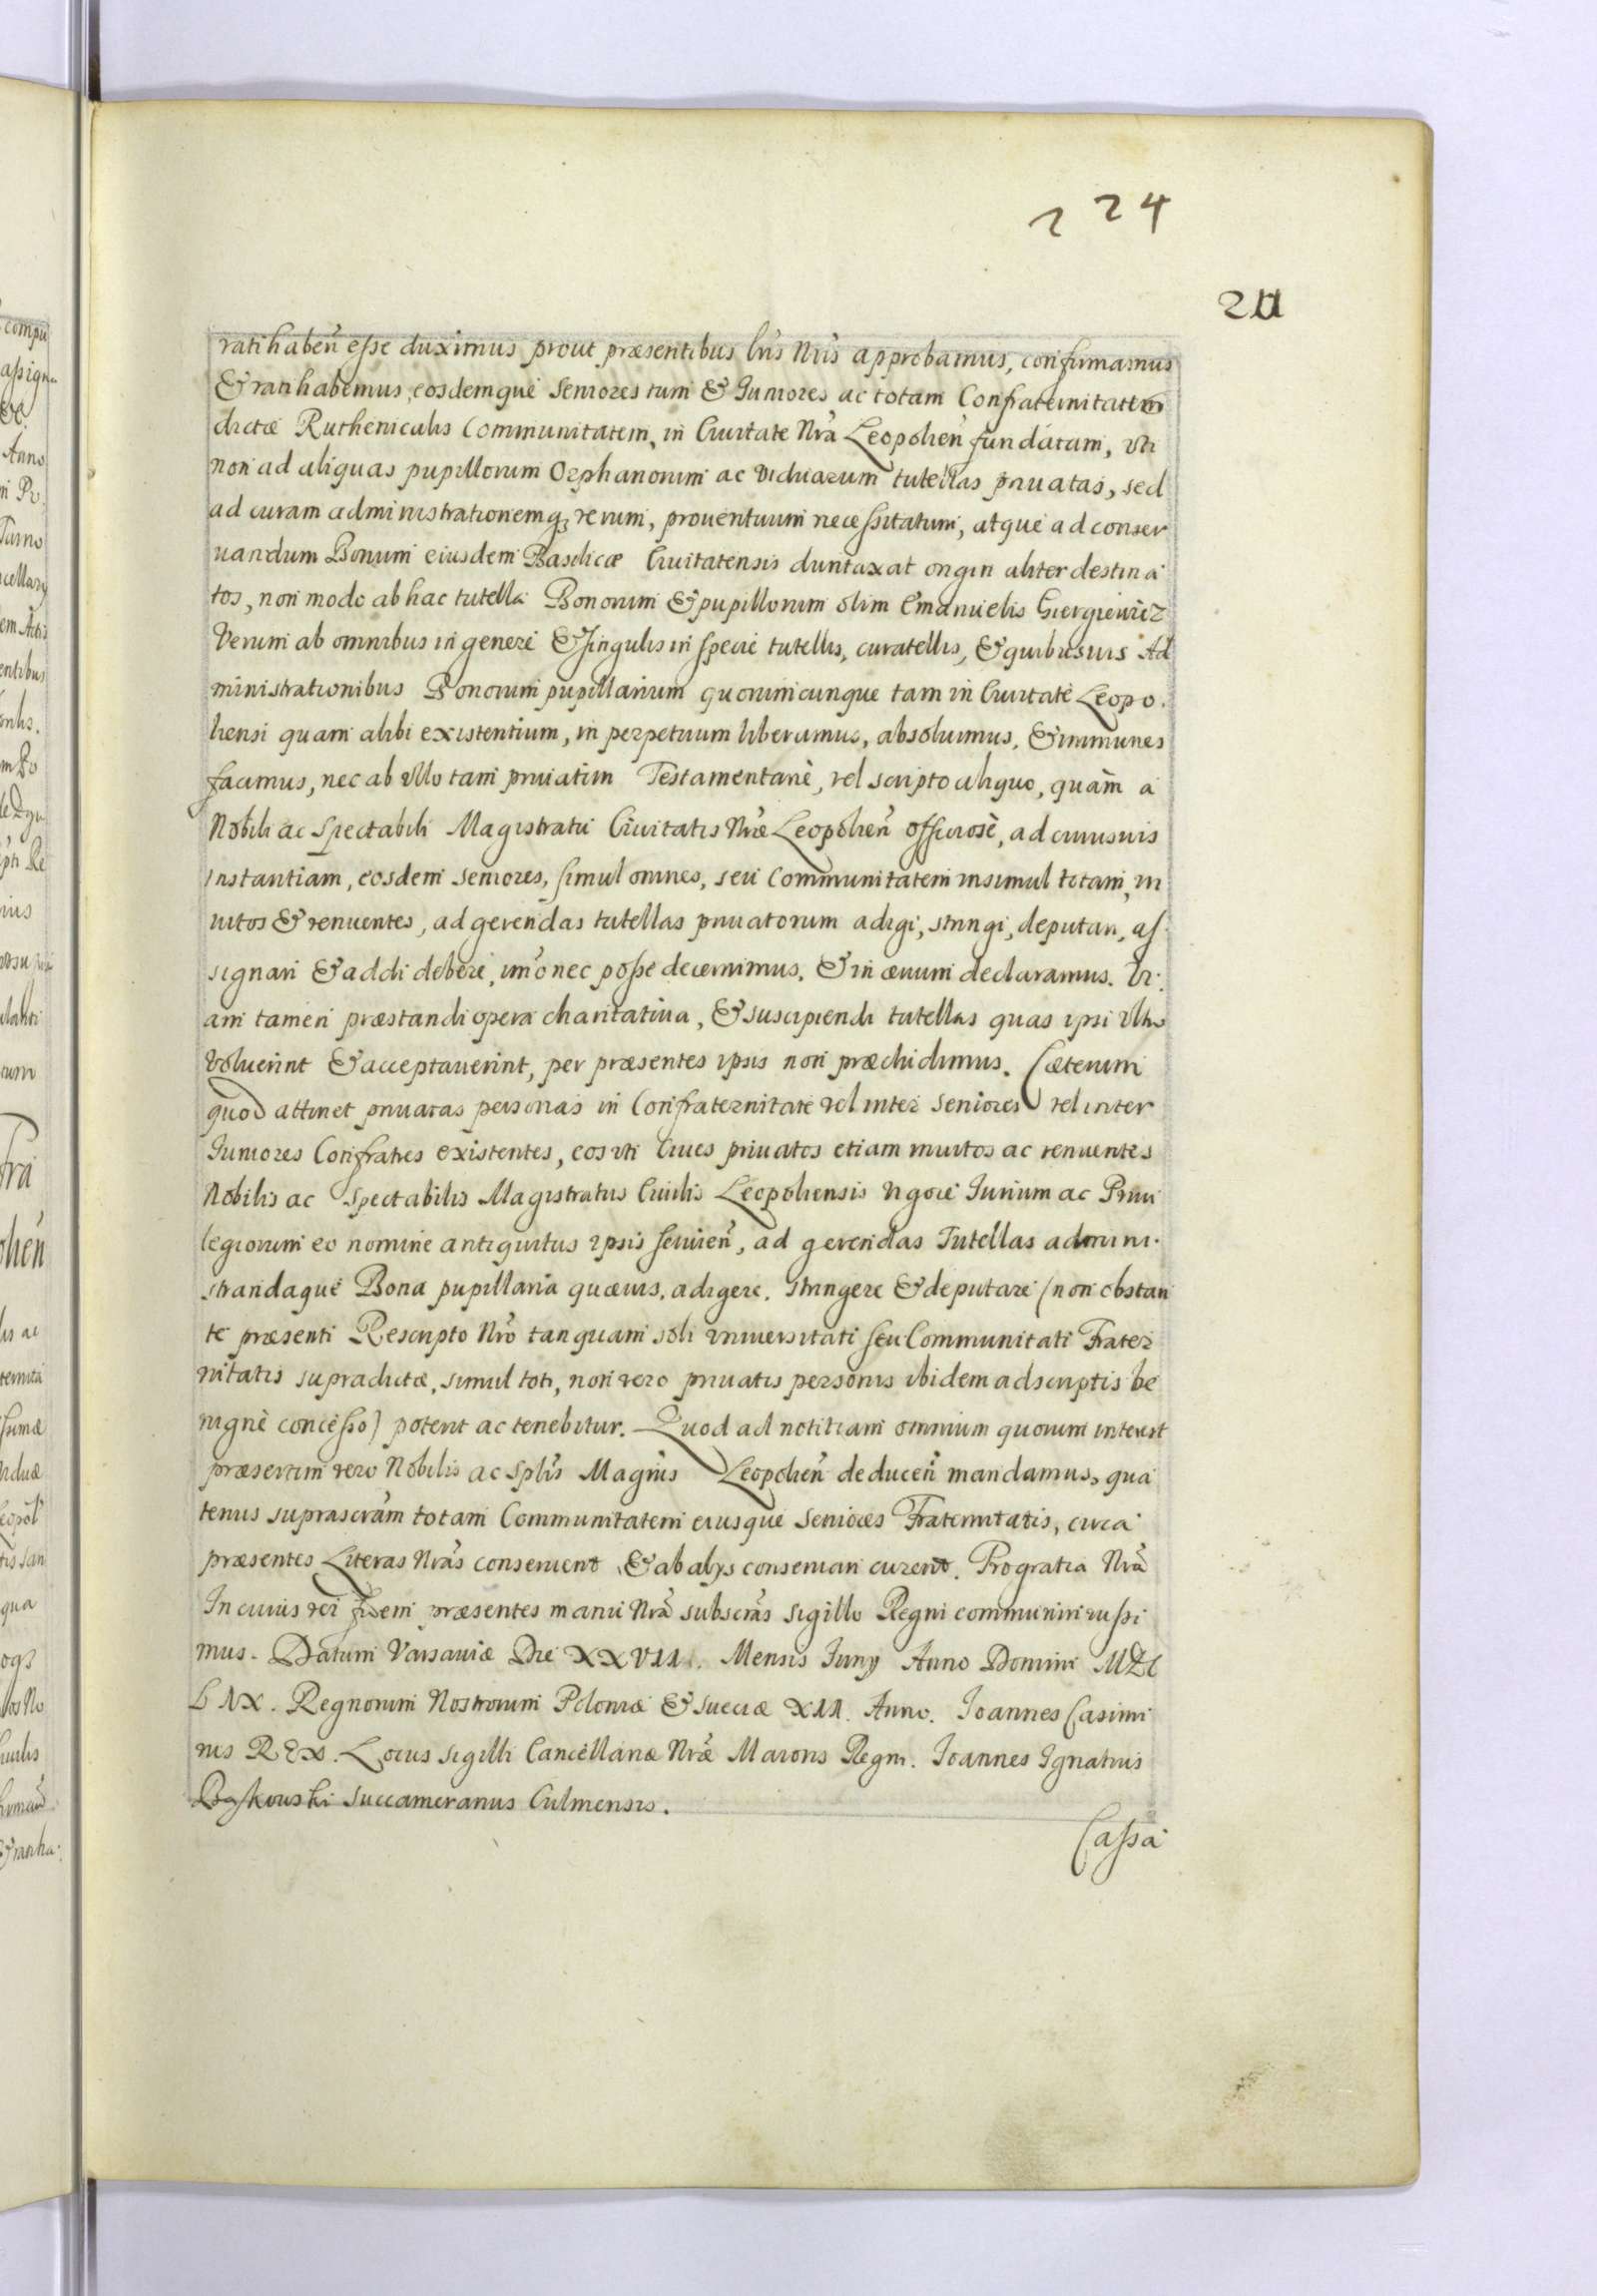 224
211
ratihaben̄ esse duximus prout præsentibus lr̃is Nr̃is approbamus, confirmamus
& ratihabemus, eosdemque Seniores tum & Iuniores ac totam Confraternitatem
dictæ Ruthenicalis Communitatem, in Ciuitate Nr̃a Leopolien̄ fundatam, vti
non ad aliquas pupillorum Orphanorum ac viduarum tutellas priuatas, sed
ad curam administrationemq; rerum, prouentuum necessitatum, atque ad conser
uandum Bonum eiusdem Basilicæ Ciuitatensis duntaxat origin aliter destina
tos, non modo ab hac tutella Bonorum & pupillorum olim Emanuelis Giergiewicz
Verum ab omnibus in genere & singulis in specie tutellis, curatellis, & quibusuis Ad
ministrationibus Bonorum pupillarium quorumcunque tam in Ciuitate Leopo.
liensi quam alibi existentium, in perpetuum liberamus, absoluimus, & immunes
facimus, nec ab vllo tam priuatim Testamentariè, vel scripto aliquo, quàm a
Nobili ac Spectabili Magistratu Ciuitatis Nr̃æ Leopolien̄ officiosè, ad cuiusuis
instantiam, eosdem Seniores, simul omnes, seu Communitatem insimul totam, in
uitos & renuentes, ad gerendas tutellas priuatorum adigi, stringi, deputari, as
signari & addi debere, imò nec posse decernimus, & in æuum declaramus. Vi.
am tamen præstandi opera charitatiua, & suscipiendi tutellas quas ipsi vltro
voluerint & acceptauerint, per præsentes ipsis non præcludimus. Cæterum
quod attinet priuatas personas in Confraternitate vel inter Seniores vel inter
Iuniores Confratres existentes, eos vti Ciues priuatos etiam inuitos ac renuentes
Nobilis ac Spectabilis Magistratus Ciuilis Leopoliensis vigore Iurium ac Priui
legiorum eo nomine antiquitus ipsis seruien̄, ad gerendas Tutellas admini.
strandaque Bona pupillaria quæuis, adigere, stringere & deputare (non obstan
te præsenti Rescripto Nr̃o tanquam soli vniuersitati seu Communitati Frater
nitatis supradictæ, simul toti, non vero priuatis personis ibidem adscriptis be
nignè concesso) poterit ac tenebitur. Quod ad notitiam omnium quorum interest
præsertim vero Nobilis ac Splis Magr̃us Leopolien̄ deducen̄ mandamus, qua
tenus suprascr̃am totam Communitatem eiusque Seniores Fraternitatis, circa
præsentes Literas Nr̃as conseruent, & ab alijs conseruari curent. Pro gratia Nr̃a
In cuius rei fidem præsentes manu Nr̃a subscr̃as Sigillo Regni communiri iussi
mus. Datum Varsauiæ Die XXVII. Mensis Iunij Anno Domini MDC
LIX. Regnorum Nostrorum Poloniæ & Sueciæ XII. Anno. Ioannes Casimi
rus REX. Locus sigilli Cancellariæ Nr̃æ Maioris Regni. Ioannes Ignatius
Bąkowski Succamerarius Culmensis.
Cassa